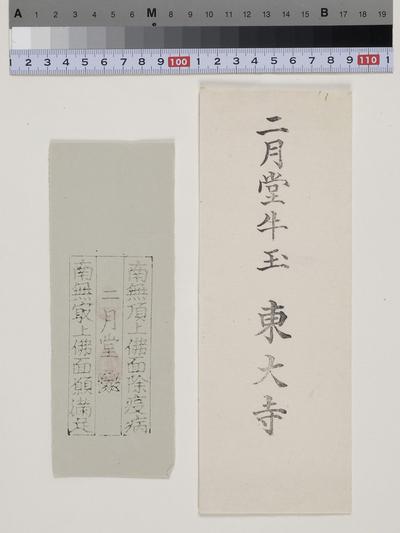 A 1 2 3 4 5 6 M 8 9 10 11 12 13 14 15 B 17 18 19
1 2 3 4 5 6 7 8 9 100 1 2 3 4 5 6 7 8 9 110 1
二月堂牛玉 東大寺
南無頂上佛面除疫病
二月堂
南無㝡上佛面願満足